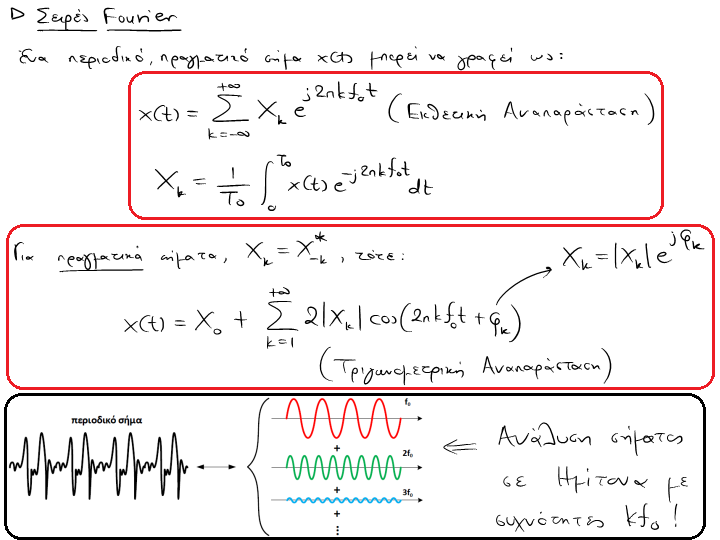 ▷ Σειρές Fourier
Ένα περιοδικό, πραγματικό σήμα x(t) μπορεί να γραφεί ως:
x(t) = ∑_{k=-∞}^{+∞} X_k e^{j2πkf_0t} (Εκθετική Αναπαράσταση)
X_k = 1/T_0 ∫_0^{T_0} x(t) e^{-j2πkf_0t} dt
Για πραγματικά σήματα, X_k = X_{-k}^*, τότε:
X_k = |X_k| e^{jφ_k}
x(t) = X_0 + ∑_{k=1}^{+∞} 2|X_k| cos(2πkf_0t + φ_k)
(Τριγωνομετρική Αναπαράσταση)
περιοδικό σήμα
f₀
+
2f₀
+
3f₀
+
⋮
⇐ Ανάλυση σήματος
σε Ημίτονα με
συχνότητες kf_0!